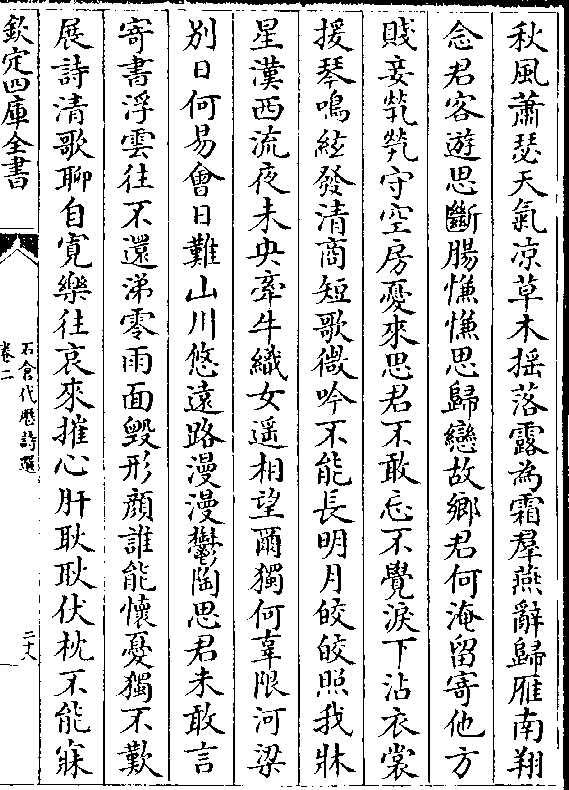 秋風蕭瑟天氣凉草木摇落露為霜羣燕辭歸雁南翔
念君客遊思斷腸慊慊思歸戀故鄉君何淹留寄他方
賤妾煢煢守空房憂來思君不敢忘不覺淚下沾衣裳
援琴鳴絃發清商短歌微吟不能長明月皎皎照我牀
星漢西流夜未央牽牛織女遥相望爾獨何辜限河梁
别日何易會日難山川悠遠路漫漫鬱陶思君未敢言
寄書浮雲往不還涕零雨面毁形顔誰能懷憂獨不歎
展詩清歌聊自寛樂往哀來摧心肝耿耿伏枕不能寐
欽定四庫全書
石倉歴代詩選
卷二
二十八